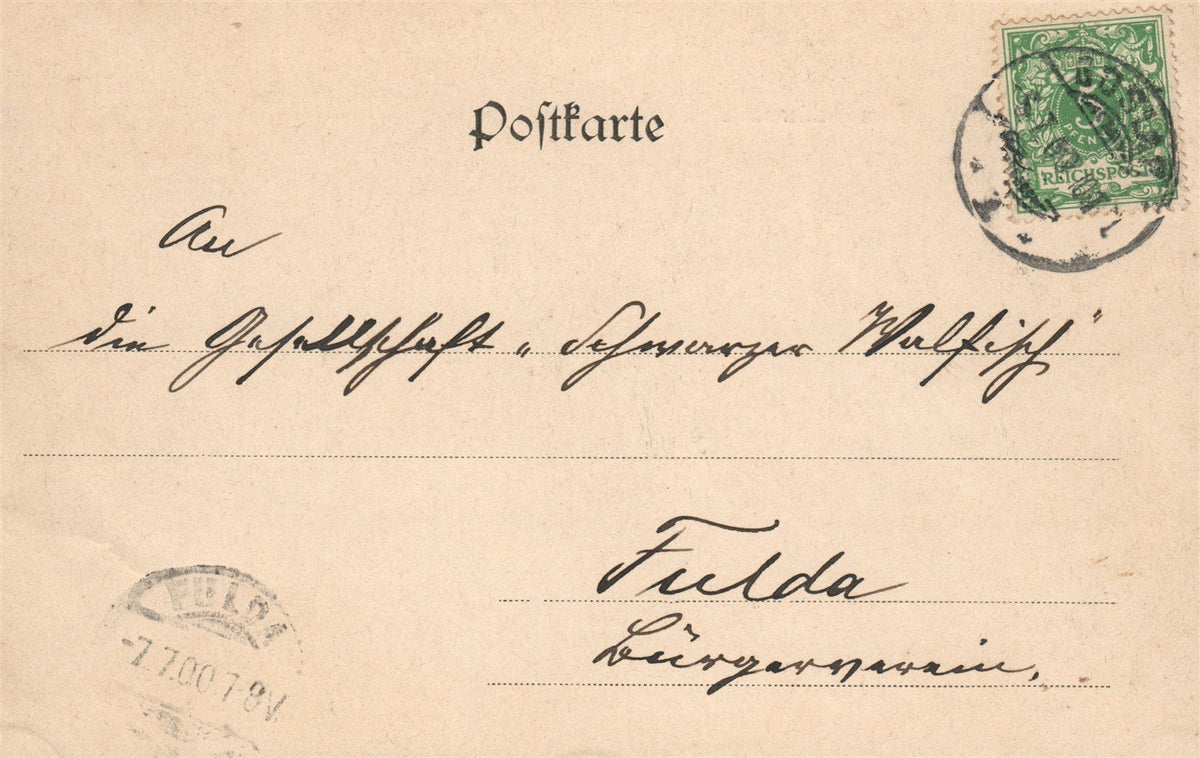 Postkarte
5
PFENNIG
REICHSPOST
An
die Gesellschaft „Schwarzer Walfisch"
Fulda
Bürgerverein.
FULDA
-7.7.00 7-8V